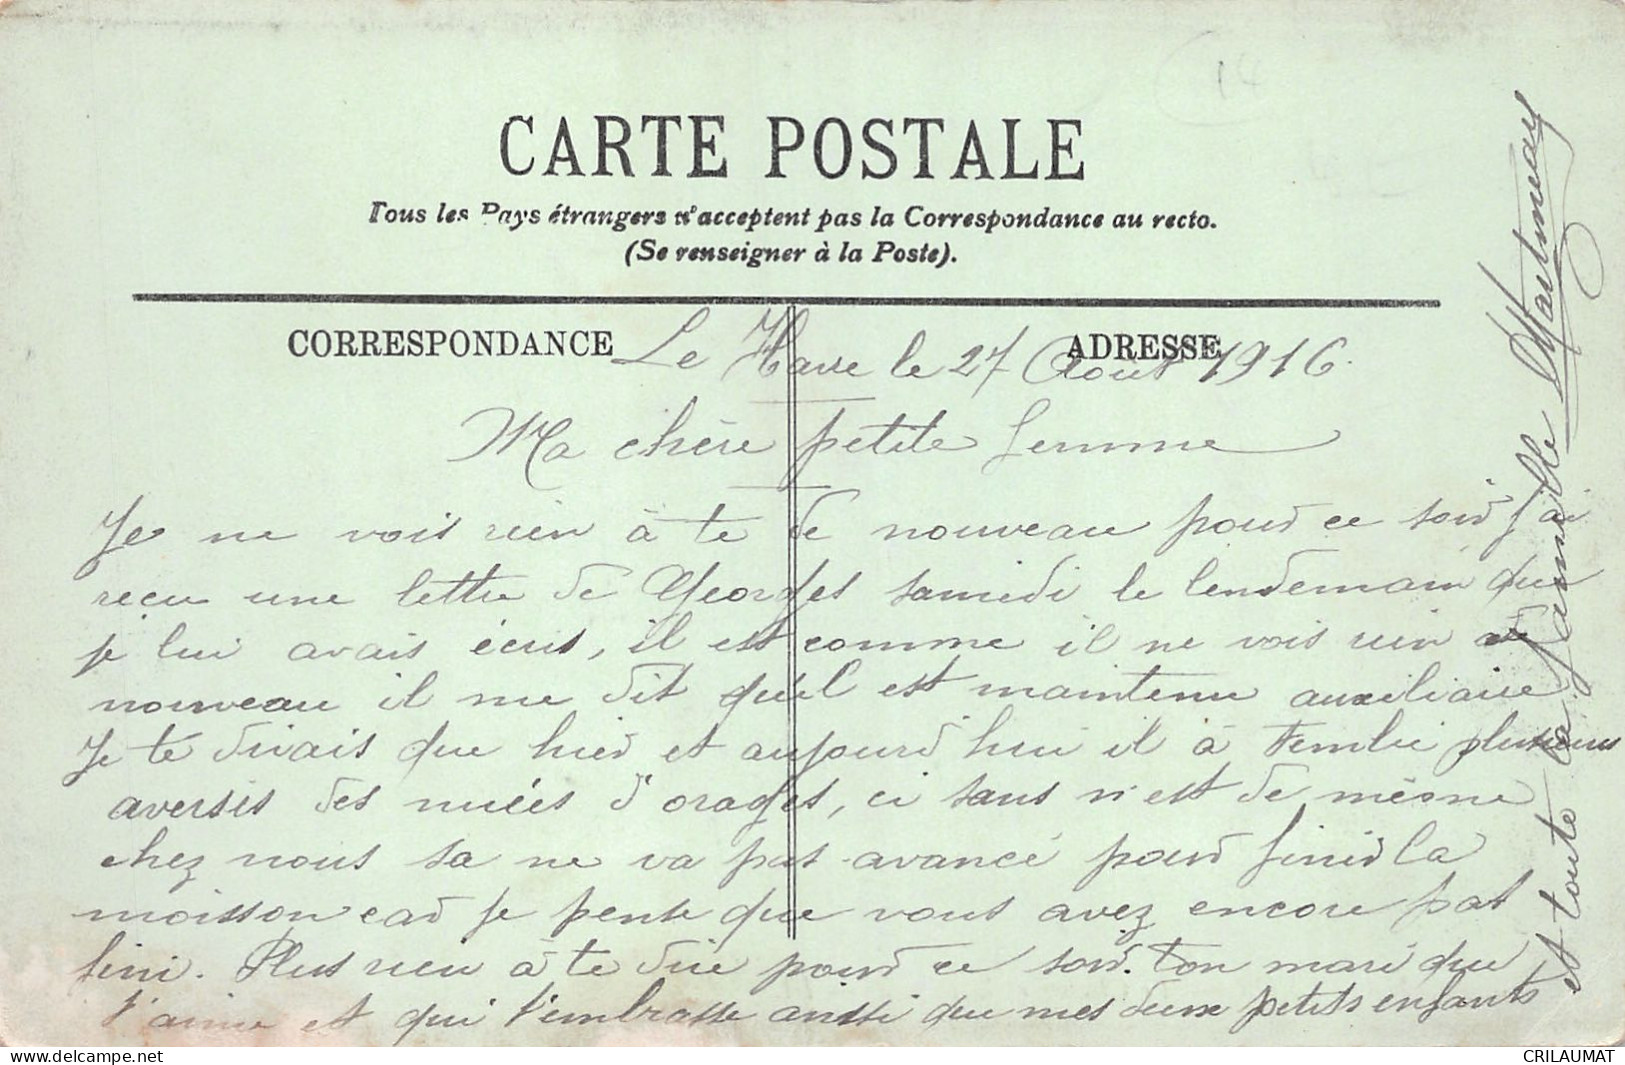 14
CARTE POSTALE
Tous les Pays étrangers n'acceptent pas la Correspondance au recto.
(Se renseigner à la Poste).
CORRESPONDANCE
ADRESSE
Le Havre le 27 Août 1916.
Ma chère petite femme
Je ne vois rien à te de nouveau pour ce soir j'ai
reçu une lettre de Georges samedi le lendemain que
je lui avais écris, il est comme il ne vois rien de
nouveau il me dit qu'il est maintenu auxiliaire
Je te dirais que hier et aujourd'hui il à tembé plusieurs
averses des nuées d'orages, ci sans n'est de mésme
chez nous sa ne va pas avancé pour finir la
moisson car je pense que vous avez encore pas
fini. Plus rien à te dire pour ce soir. Ton mari que
t'aime et qui t'embrasse aussi que mes deux petits enfants
et toute la famille Martineau
delcampe.net
CRILAUMAT